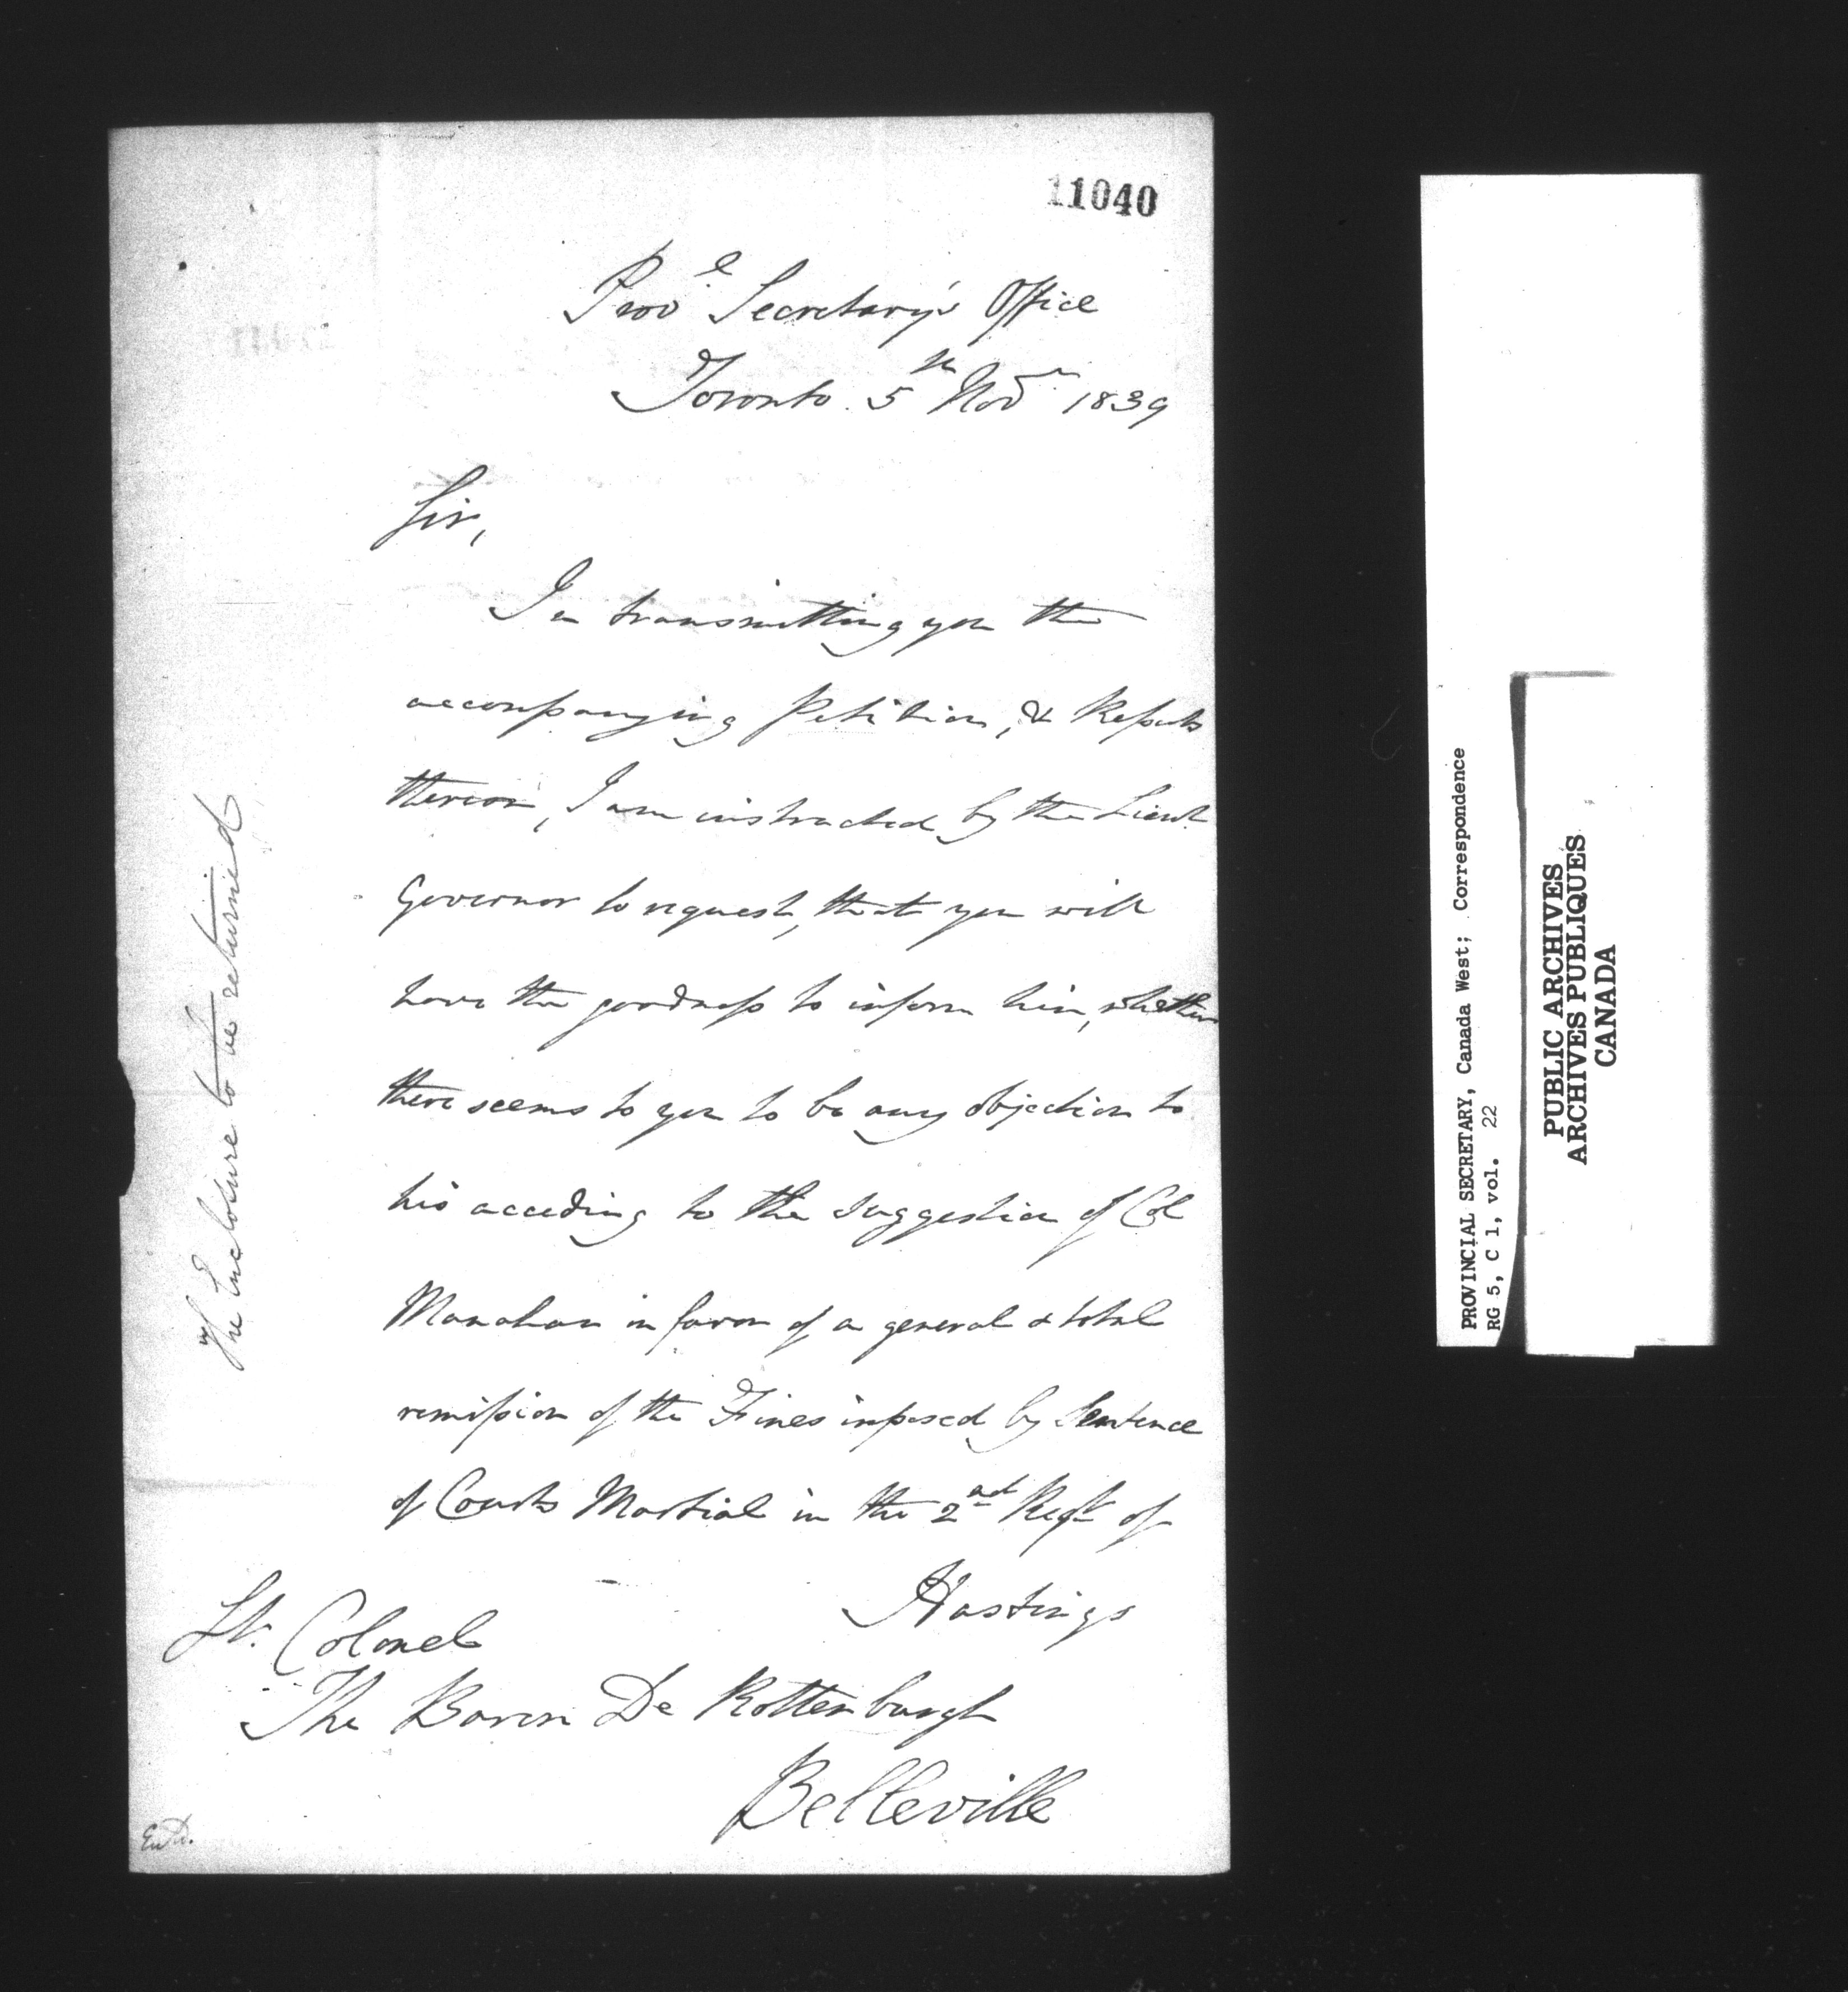 11040
Prov.l Secretary's Office
Toronto 5th Novr 1839
Sir,
In transmitting you the
accompanying Petition, & Reports
thereon, I am instructed by the Lieut
Governor to request, that you will
have the goodness to inform him, whether
there seems to you to be any objection to
his acceding to the suggestion of Col
Manahan in favor of a general & total
remission of the Fines imposed by Sentence
of Courts Martial in the 2nd Regt of
Hastings
Lt. Colonel
The Baron De Rottenburgh
Belleville
The Enclosure to be returned
PROVINCIAL SECRETARY, Canada West; Correspondence
RG 5, C 1, vol. 22
PUBLIC ARCHIVES
ARCHIVES PUBLIQUES
CANADA